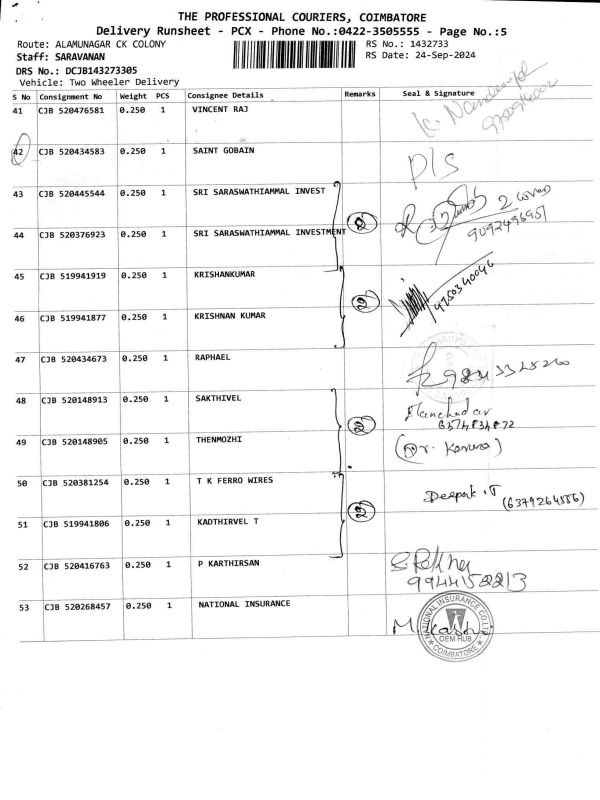 THE PROFESSIONAL COURIERS, COIMBATORE
Delivery Runsheet - PCX - Phone No.:0422-3505555 - Page No.:5
Route: ALAMUNAGAR CK COLONY
RS No.: 1432733
Staff: SARAVANAN
RS Date: 24-Sep-2024
DRS No.: DCJB143273305
Vehicle: Two Wheeler Delivery
S No Consignment No Weight PCS Consignee Details Remarks Seal & Signature
41 CJB 520476581 0.250 1 VINCENT RAJ
42 CJB 520434583 0.250 1 SAINT GOBAIN D/S
43 CJB 520445544 0.250 1 SRI SARASWATHIAMMAL INVEST
9092496951
44 CJB 520376923 0.250 1 SRI SARASWATHIAMMAL INVESTMENT
45 CJB 519941919 0.250 1 KRISHANKUMAR
9750340046
46 CJB 519941877 0.250 1 KRISHNAN KUMAR
47 CJB 520434673 0.250 1 RAPHAEL
48 CJB 520148913 0.250 1 SAKTHIVEL
49 CJB 520148905 0.250 1 THENMOZHI
50 CJB 520381254 0.250 1 T K FERRO WIRES
Deepak .T
(6379264586)
51 CJB 519941806 0.250 1 KADTHIRVEL T
52 CJB 520416763 0.250 1 P KARTHIRSAN
9944152213
53 CJB 520268457 0.250 1 NATIONAL INSURANCE
NATIONAL INSURANCE CO LTD
OEM HUB
COIMBATORE